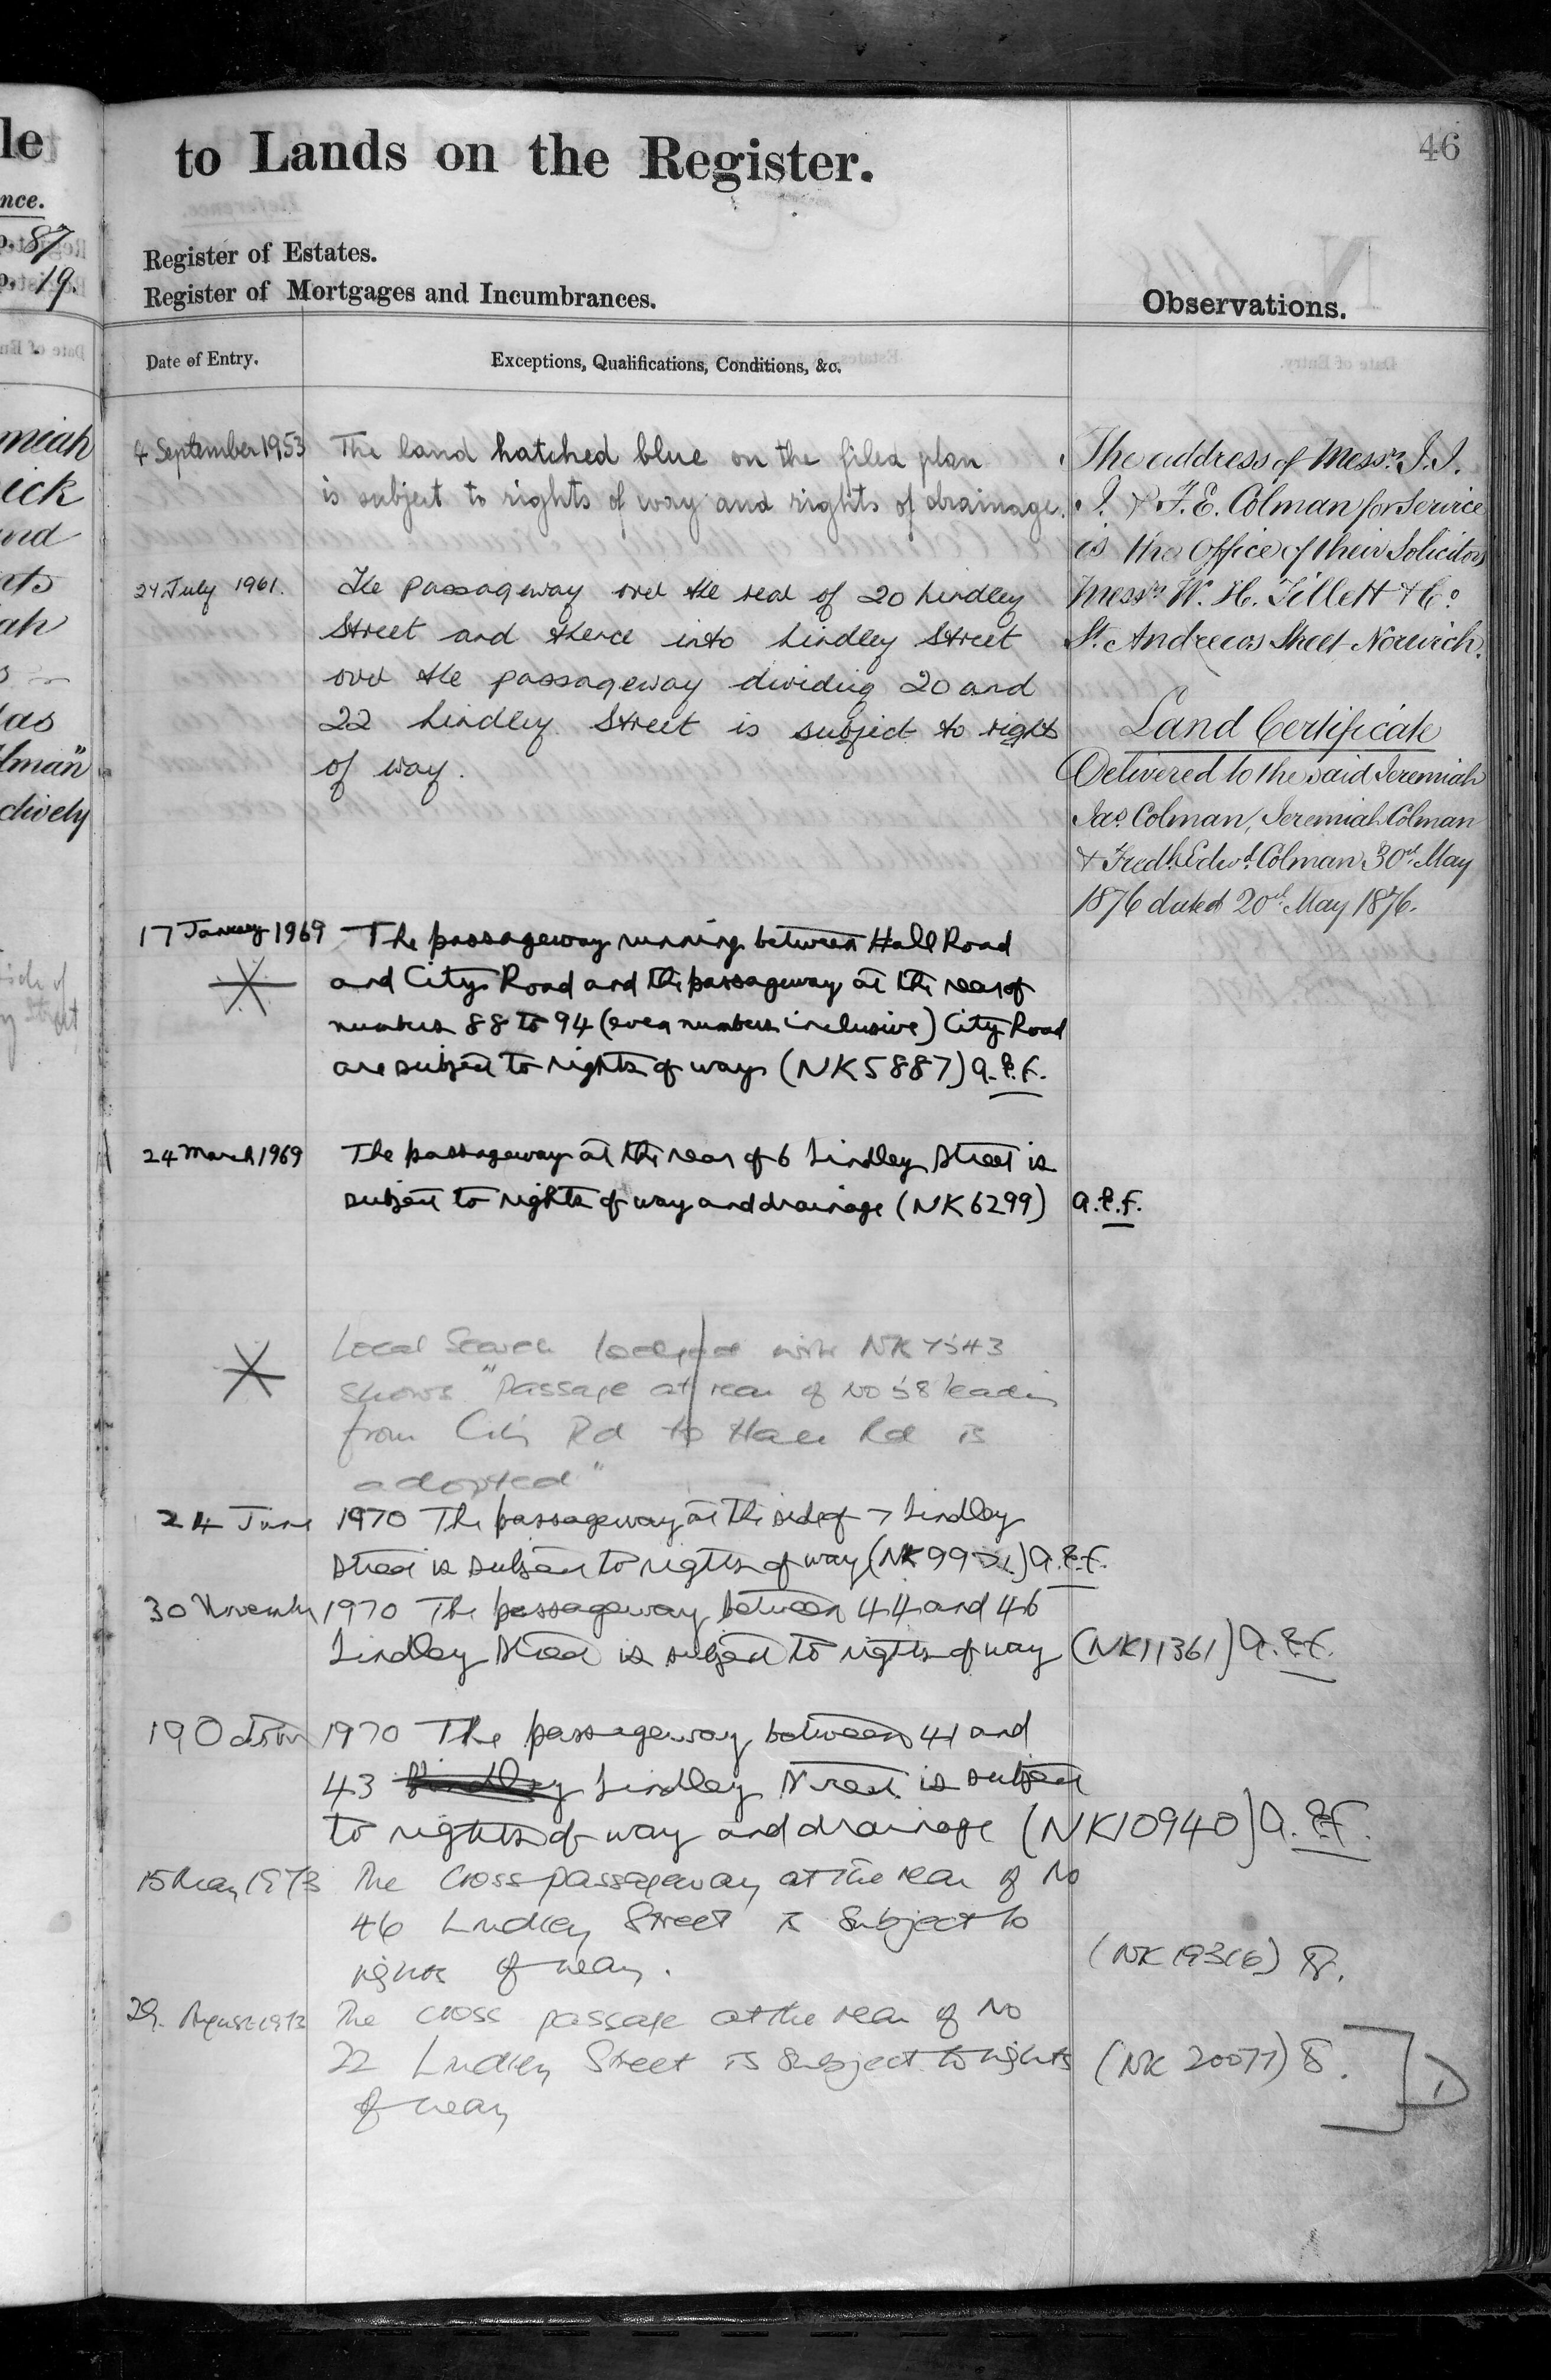 le
nce.
p. 87
p. 19.
miah
ick
and
nts
ah
as
lman"
ctively
46
to Lands on the Register.
Register of Estates.
Register of Mortgages and Incumbrances.
Observations.
Date of Entry.
Exceptions, Qualifications, Conditions, &c.
4 September 1953 The land hatched blue on the filed plan
is subject to rights of way and rights of drainage.
24 July 1961. The passageway over the rear of 20 Lindley
Street and thence into Lindley Street
over the passageway dividing 20 and
22 Lindley Street is subject to rights
of way.
17 January 1969 The passageway running between Hall Road
and City Road and the passageway at the rear of
numbers 88 to 94 (even numbers inclusive) City Road
are subject to rights of way (NK5887) a.e.f.
24 March 1969 The passageway at the rear of 6 Lindley Street is
subject to rights of way and drainage (NK6299) a.e.f.
Local Search lodged with NK7543
shows "Passage at rear of No 58 leading
from City Rd to Hall Rd is
adopted"
24 June 1970 The passageway at the side of 7 Lindley
Street is subject to rights of way (NK99) a.e.f.
30 November 1970 The passageway between 44 and 46
Lindley Street is subject to rights of way (NK11361) a.e.f.
19 October 1970 The passageway between 41 and
43 Lindley Street is subject
to rights of way and drainage (NK10940) a.e.f.
15 May 1973 The Cross passageway at the rear of No
46 Lindley Street is subject to
rights of way. (NK 19316)
29. August 1973 The cross passage at the rear of No
22 Lindley Street is subject to rights (NK 20077)
of way
The address of Messrs. J.J.
J. & F.E. Colman for Service
is the Office of their Solicitors
Messrs W. H. Tillett & Co.
St. Andrews Street Norwich.
Land Certificate
Delivered to the said Jeremiah
Jas. Colman, Jeremiah Colman
& Fredk Edwd. Colman 30th May
1876 dated 20th May 1876.